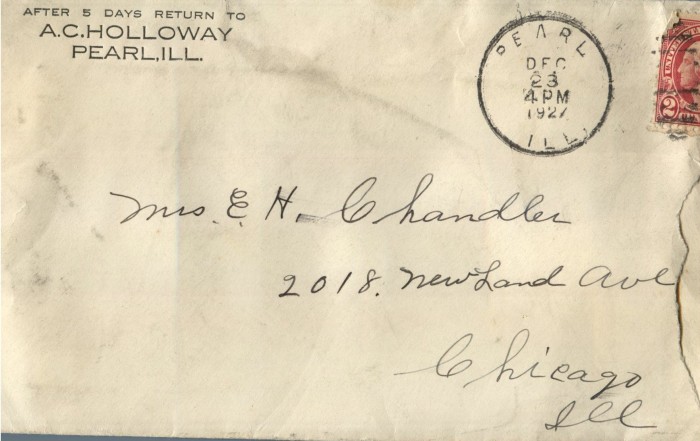 AFTER 5 DAYS RETURN TO
A.C. HOLLOWAY
PEARL, ILL.
PEARL
DEC
23
4 PM
1927
ILL.
2
Mrs. E. H. Chandler
2018. New Land Ave
Chicago
Ill